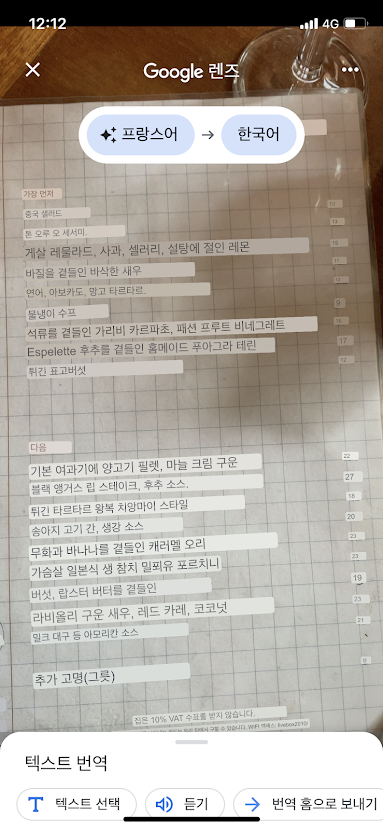 12:12
4G
Google 렌즈
프랑스어 → 한국어
가장 먼저
중국 샐러드
톤 오루 오 세서미.
게살 레물라드, 사과, 셀러리, 설탕에 절인 레몬
바질을 곁들인 바삭한 새우
연어, 아보카도, 망고 타르타르.
물냉이 수프 9
석류를 곁들인 가리비 카르파초, 패션 프루트 비네그레트
Espelette 후추를 곁들인 홈메이드 푸아그라 테린 17
튀긴 표고버섯 12
다음
기본 여과기에 양고기 필렛, 마늘 크림 구운 22
블랙 앵거스 립 스테이크, 후추 소스. 27
튀긴 타르타르 왕복 치앙마이 스타일 18
송아지 고기 간, 생강 소스 20
무화과 바나나를 곁들인 캐러멜 오리 23
가슴살 일본식 생 참치 밀푀유 포르치니 23
버섯, 랍스터 버터를 곁들인 19
라비올리 구운 새우, 레드 카레, 코코넛 23
밀크 대구 등 아모리칸 소스 21
추가 고명(그릇)
집은 10% VAT 수표를 받지 않습니다.
텍스트 번역
텍스트 선택
듣기
번역 홈으로 보내기